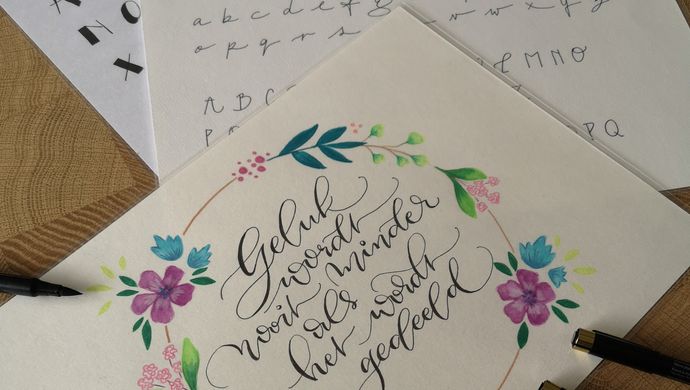 N O
X
a b c d e f g
o p q r s
v w x y
L M N O
A B C
P Q
Geluk
wordt
nooit minder
als
het wordt
gedeeld